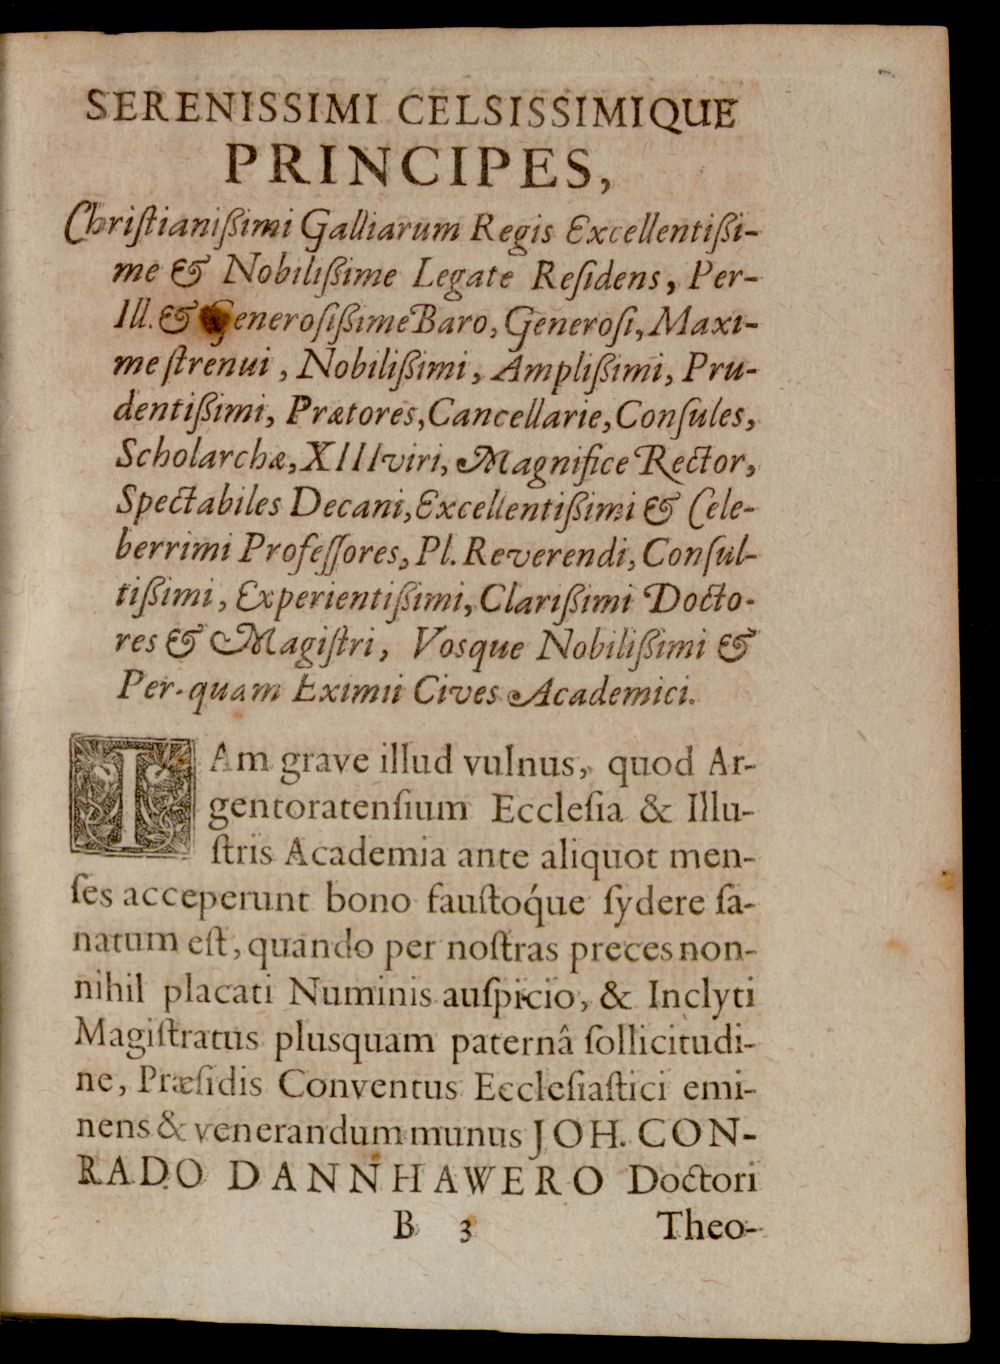 SERENISSIMI CELSISSIMIQUE
PRINCIPES,
Chriſtianiſſimi Galliarum Regis Excellentiſſi-
me & Nobiliſſime Legate Reſidens, Per-
Ill. & Generoſiſſime Baro, Generoſi, Maxi-
me ſtrenui, Nobiliſſimi, Ampliſſimi, Pru-
dentiſſimi, Prætores, Cancellarie, Conſules,
Scholarchæ, XIIIviri, Magnifice Rector,
Spectabiles Decani, Excellentiſſimi & Cele-
berrimi Profeſſores, Pl. Reverendi, Conſul-
tiſſimi, Experientiſſimi, Clariſſimi Docto-
res & Magiſtri, Vosque Nobiliſſimi &
Per-quam Eximii Cives Academici.
IAm grave illud vulnus, quod Ar-
gentoratenſium Eccleſia & Illu-
ſtris Academia ante aliquot men-
ſes acceperunt bono fauſtoq́ue ſydere ſa-
natum eſt, quando per noſtras preces non-
nihil placati Numinis auſpicio, & Inclyti
Magiſtratus plusquam paternâ ſollicitudi-
ne, Præſidis Conventus Eccleſiaſtici emi-
nens & venerandum munus JOH. CON-
RADO DANNHAWERO Doctori
B 3 Theo-